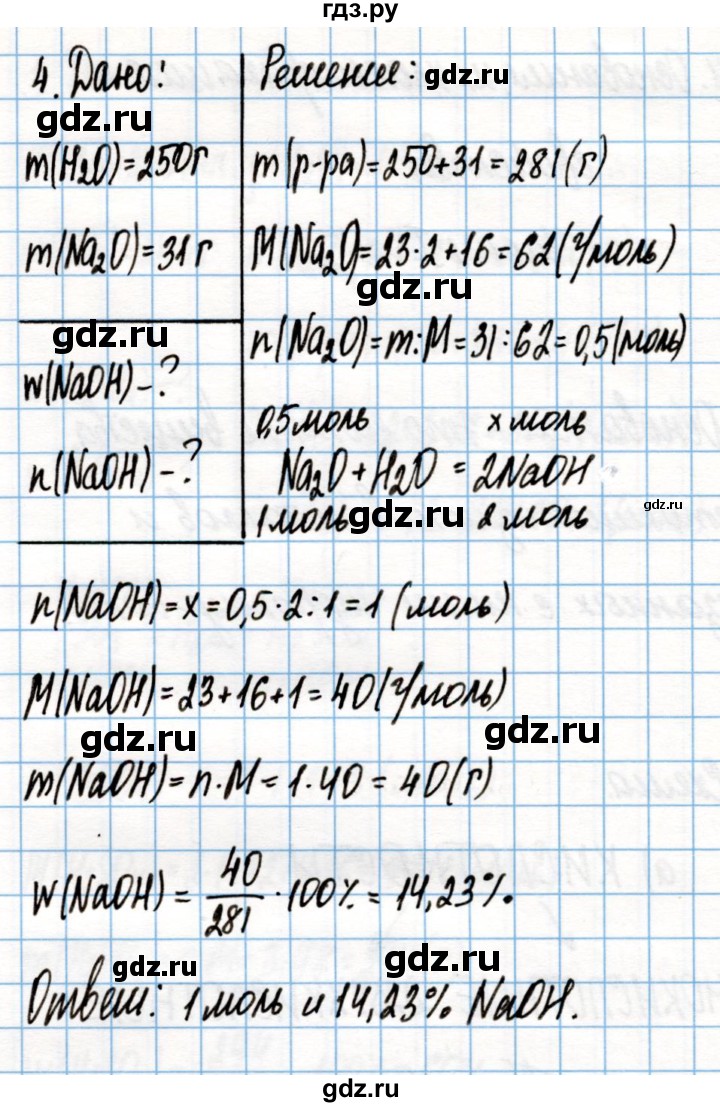 гдз.ру
4. Дано:
gdz.ru
m(H₂O)=250г
m(Na₂O)=31г
gdz.ru
w(NaOH)-?
n(NaOH)-?
Решение:
gdz.ru
m(р-ра)=250+31=281(г)
M(Na₂O)=23·2+16=62(г/моль)
gdz.ru
n(Na₂O)=m:M=31:62=0,5(моль)
0,5моль x моль
Na₂O+H₂O=2NaOH
gdz.ru
1моль 2 моль
gdz.ru
n(NaOH)=x=0,5·2:1=1 (моль)
M(NaOH)=23+16+1=40(г/моль)
gdz.ru gdz.ru
m(NaOH)=n·M=1·40=40(г)
w(NaOH)=40/281·100%=14,23%.
gdz.ru gdz.ru
Ответ: 1 моль и 14,23% NaOH.
gdz.ru